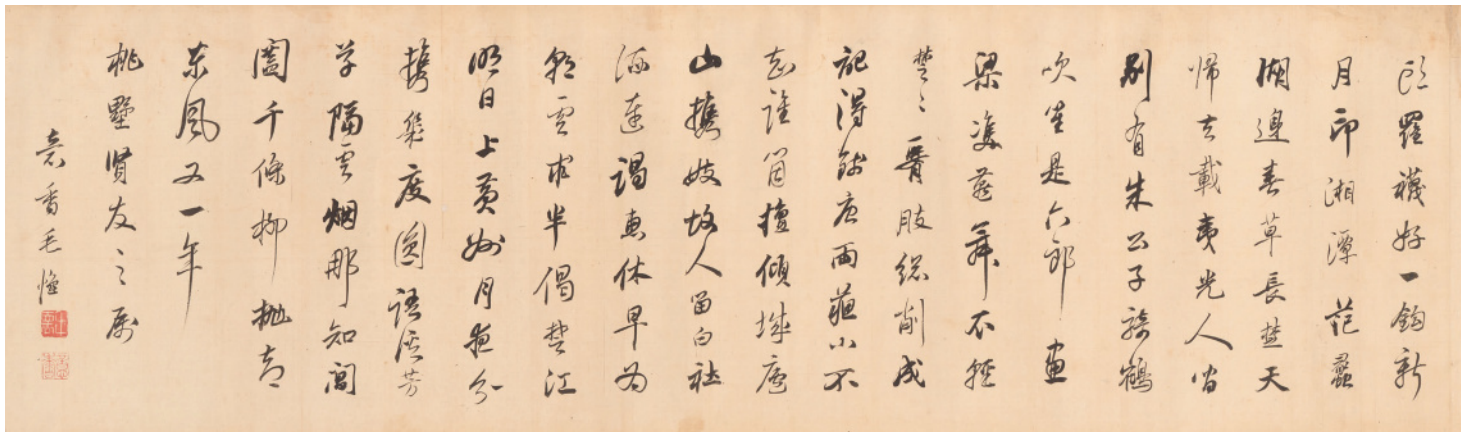 羅襪好一鉤新
月印湘潭范蠡
湖邊春草長楚天
歸去載夷光人
別有朱公子騎鶴
吹笙是六郎 畫
梁雙燕舞不
楚〻腰肢總削成
記得錢唐兩蘇小不
知誰箇擅傾城廬
山攜妓故人留白社
酒蓮謁惠休早為
朝雲求半偈楚江
明日上黃州月夜分
攜幾度圓語溪芳
草隔雲烟那知閶
闔千條柳拋
東風又一年
桃墅賢友之屬
香毛